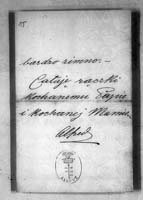 15
bardzo zimno. –
Całuję rączki
kochanemu
i kochanej Mamie
Alfred